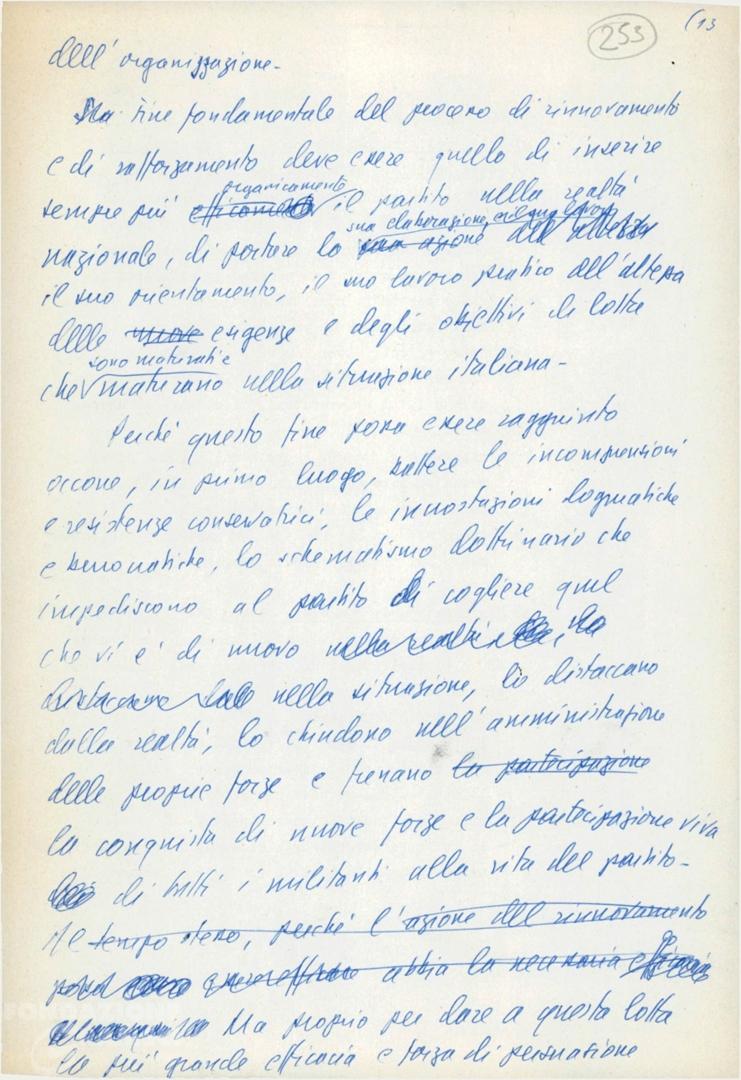 253
(13
dell'organizzazione-
Ma fine fondamentale del processo di rinnovamento
e di rafforzamento deve essere quello di inserire
organicamente
sempre più efficamente il partito nella realtà
sua elaborazione, e il suo
nazionale, di portare la sua azione all'altezza
il suo orientamento, il suo lavoro pratico all'altezza
delle nuove esigenze e degli obiettivi di lotta
sono maturati e
che maturano nella situazione italiana-
Perché questo fine possa essere raggiunto
occorre, in primo luogo, battere le incomprensioni
e resistenze conservatrici, le impostazioni dogmatiche
e burocratiche, lo schematismo dottrinario che
impediscono al partito di cogliere quel
che vi è di nuovo nella realtà
nella situazione, lo distaccano
dalla realtà, lo chiudono nell'amministrazione
delle proprie forze e frenano la partecipazione
la conquista di nuove forze e la partecipazione viva
di tutti i militanti alla vita del partito-
Nel tempo stesso, perché l'azione del rinnovamento
possa abbia la necessaria efficacia
Ma proprio per dare a questa lotta
la più grande efficacia e forza di persuasione